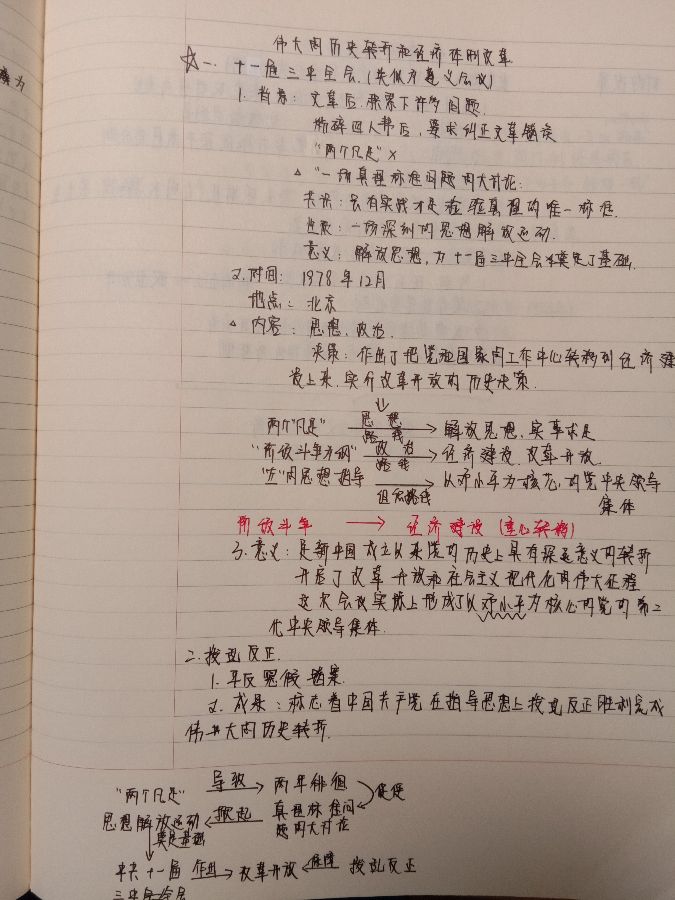 伟大的历史转折和经济体制改革
☆一. 十一届三中全会.(类似方遵义会议)
1. 背景: 文革后, 积累下许多问题.
粉碎四人帮后, 要求纠正文革错误
"两个凡是" ×
△ "一场真理标准问题的大讨论:
共识: 只有实践才是检验真理的唯一标准.
性质: 一场深刻的思想解放运动.
意义: 解放思想, 为十一届三中全会奠定了基础.
2. 时间: 1978年12月
地点: 北京
△ 内容: 思想, 政治.
决策: 作出了把党和国家的工作中心转移到经济建
设上来, 实行改革开放的历史决策.
两个"凡是" 思想路线 → 解放思想, 实事求是
"阶级斗争为纲" 政治路线 → 经济建设, 改革开放.
"左"的思想指导 组织路线 → 以邓小平为核心的党中央领导
集体
阶级斗争 → 经济建设 (重心转移)
3. 意义: 是新中国成立以来党的历史上具有深远意义的转折
开启了改革开放和社会主义现代化的伟大征程
这次会议实际上形成了以邓小平为核心的党的第二
代中央领导集体.
二. 拨乱反正
1. 平反冤假错案.
2. 成果: 标志着中国共产党在指导思想上拨乱反正胜利完成
伟大的历史转折.
"两个凡是" 导致 → 两年徘徊 促使
思想解放运动 ← 掀起 真理标准问
题的大讨论
奠定基础
中共十一届 作出 → 改革开放 ← 保障 拨乱反正
三中全会